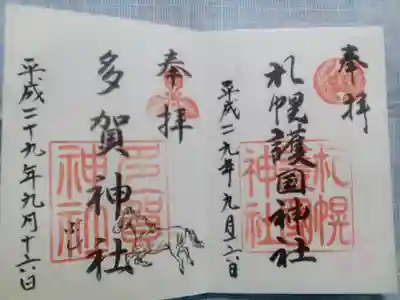 奉拝
札幌護国神社
平成二九年九月十六日
札幌
神社
奉拝
多賀神社
平成二十九年九月十六日
多賀
神社